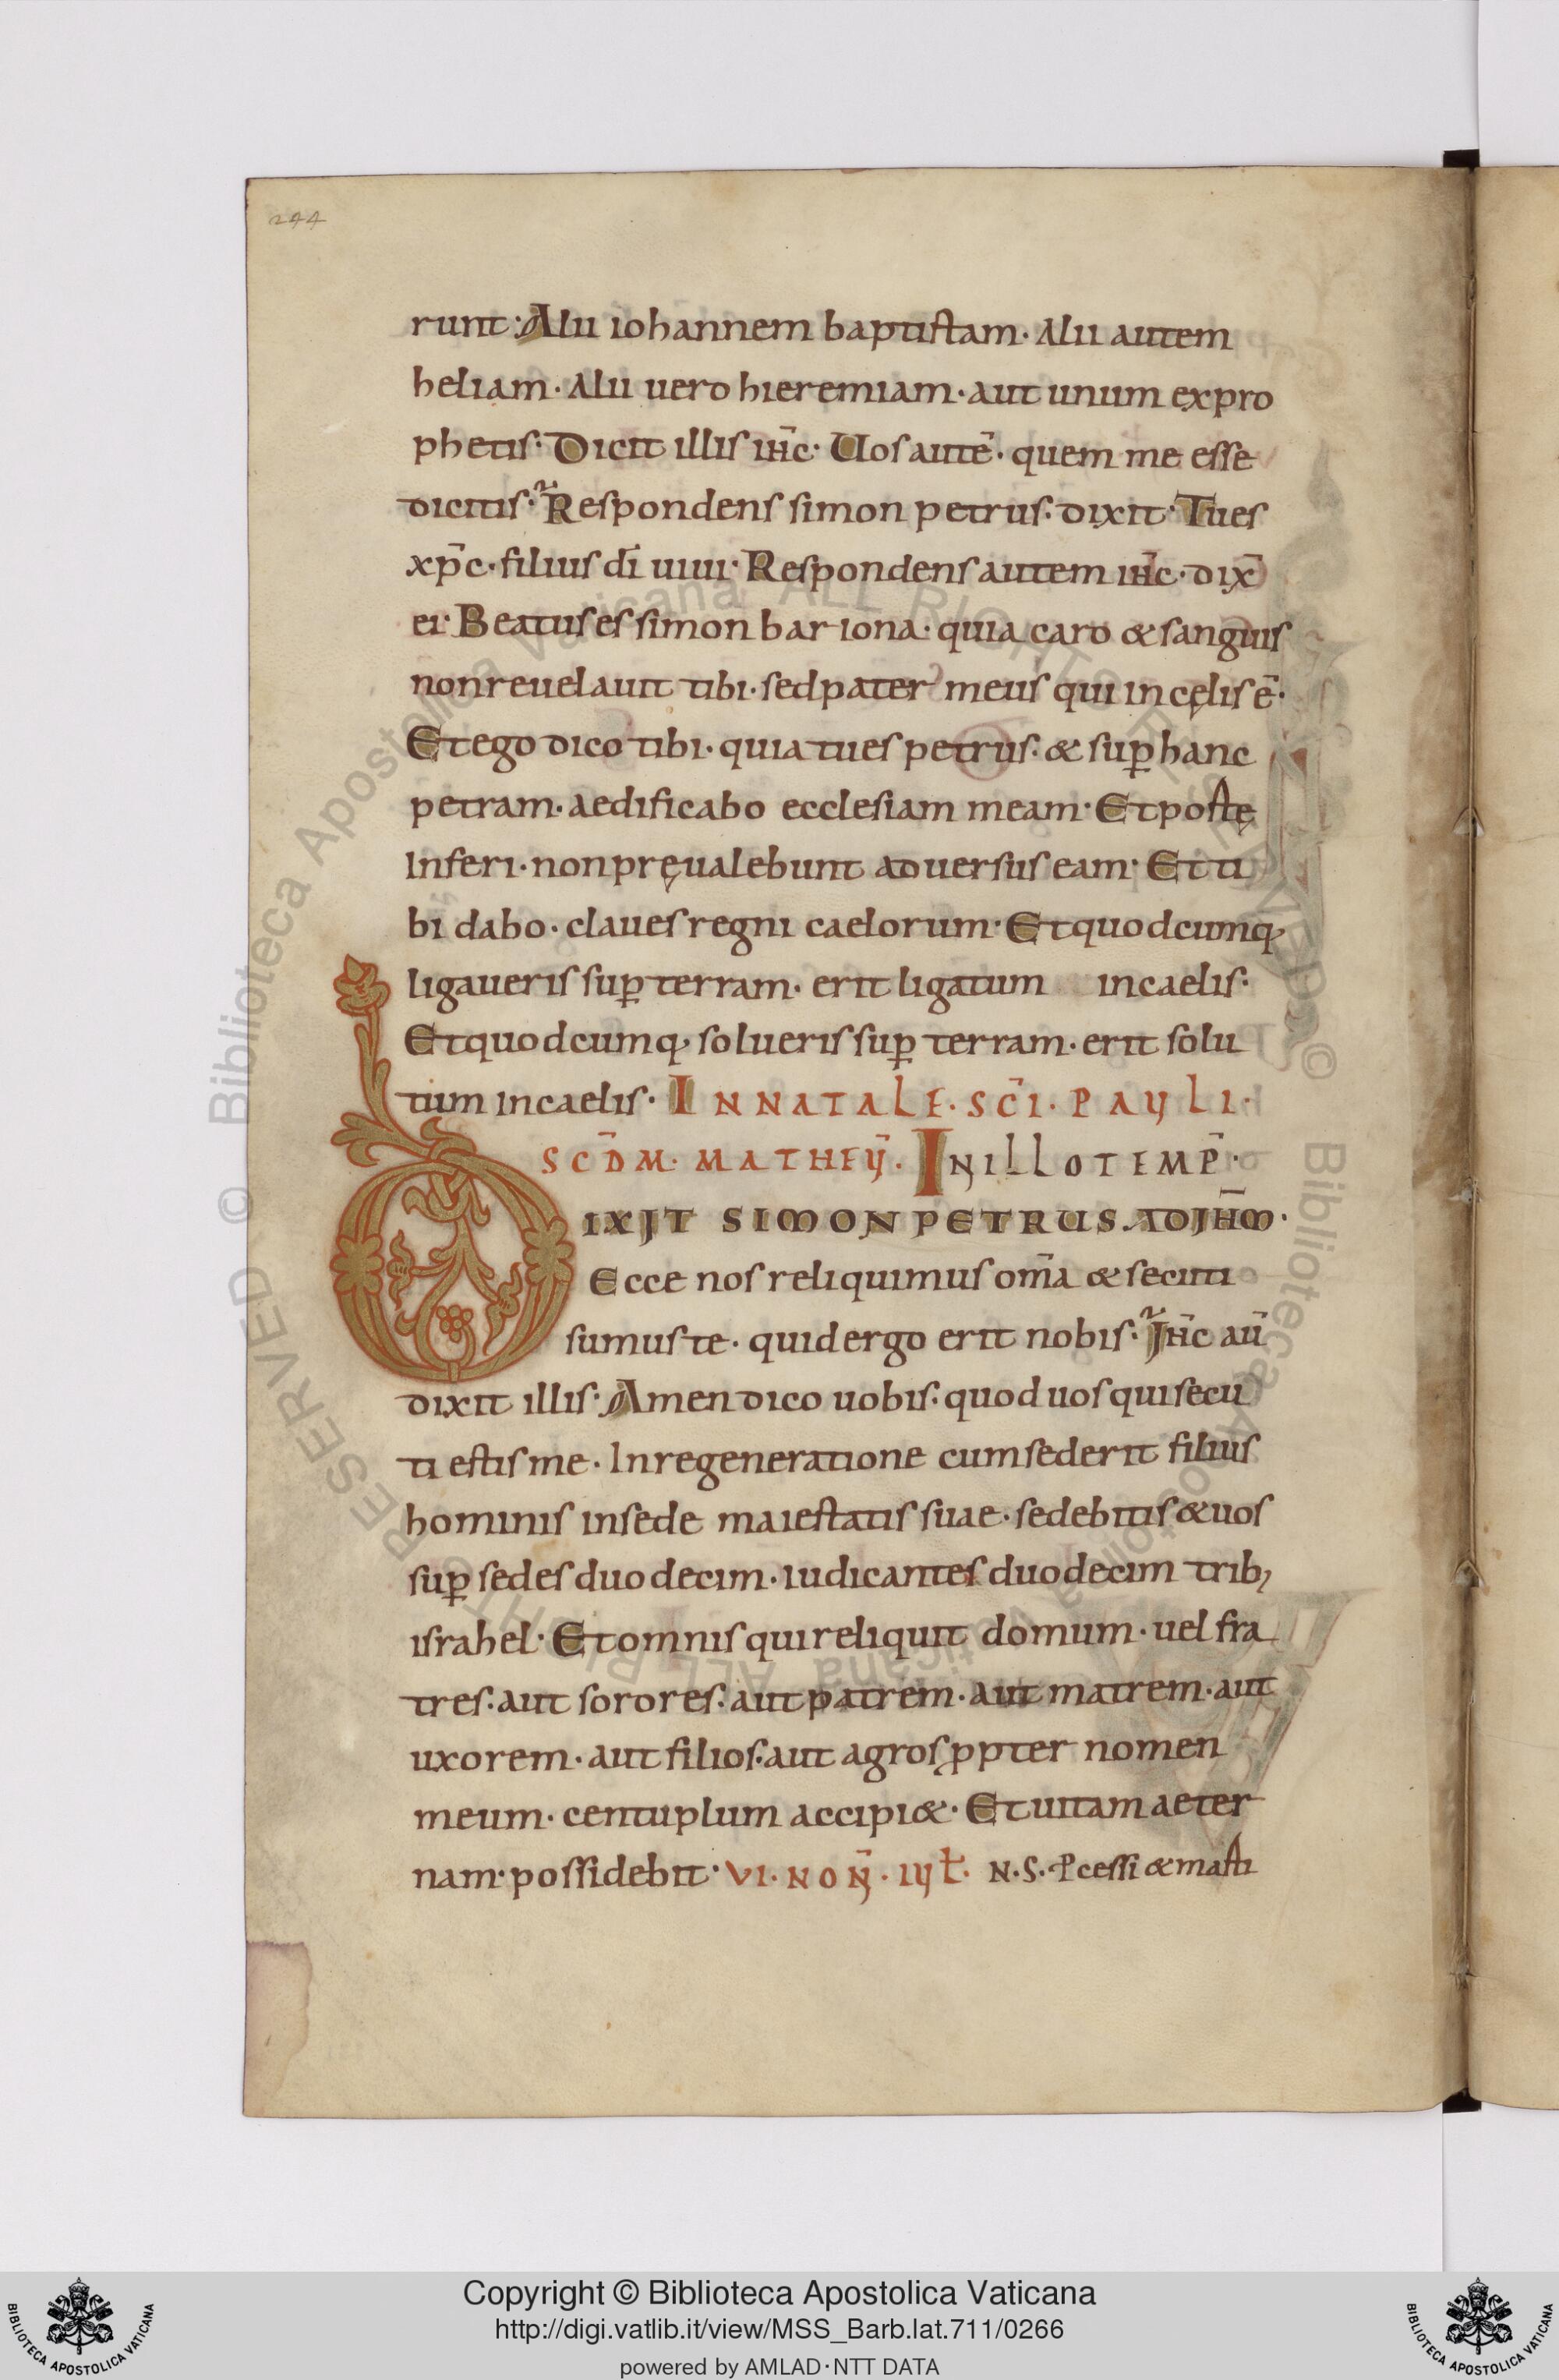 244
runt· Alii iohannem baptistam· Alii autem
heliam· Alii uero hieremiam· aut unum expro
phetis· Dicit illis ih̄c· Uos autē· quem me esse
dicitis· Respondens simon petrus· dixit· Tu es
xp̄c· filius dī uiui· Respondens autem ih̄c· dix̄
ei· Beatus es simon bar iona· quia caro & sanguis
non reuelauit tibi· sed pater meus qui in cęlis ē·
Et ego dico tibi· quia tu es petrus· & sup̱ hanc
petram· aedificabo ecclesiam meam· Et postę
Inferi· non pręualebunt aduersus eam· Et ti
bi dabo· claues regni caelorum· Et quodcumq;
ligaueris sup̱ terram· erit ligatum in caelis·
Et quodcumq; solueris sup̱ terram· erit solu
tum in caelis· IN NATALE· SC̄I· PAULI·
SCD̄M· MATHEŪ· IN ILLO TEMP̄·
DIXIT SIMON PETRUS AD IHM̄·
Ecce nos reliquimus om̄a & secuti
sumus te· quid ergo erit nobis· Ih̄c aū
dixit illis· Amen dico uobis· quod uos qui secu
ti estis me· In regeneratione cum sederit filius
hominis in sede maiestatis suae· sedebitis & uos
sup̱ sedes duodecim· iudicantes duodecim trib;
israhel· Et omnis qui reliquit domum· uel fra
tres· aut sorores· aut patrem· aut matrem· aut
uxorem· aut filios· aut agros ꝓpter nomen
meum· centuplum accipi&· Et uitam aeter
nam· possidebit· VI· NON̄· IUŁ· N·S· Ꝓcessi & masti
Copyright © Biblioteca Apostolica Vaticana
http://digi.vatlib.it/view/MSS_Barb.lat.711/0266
powered by AMLAD·NTT DATA
BIBLIOTECA APOSTOLICA VATICANA
BIBLIOTECA APOSTOLICA VATICANA